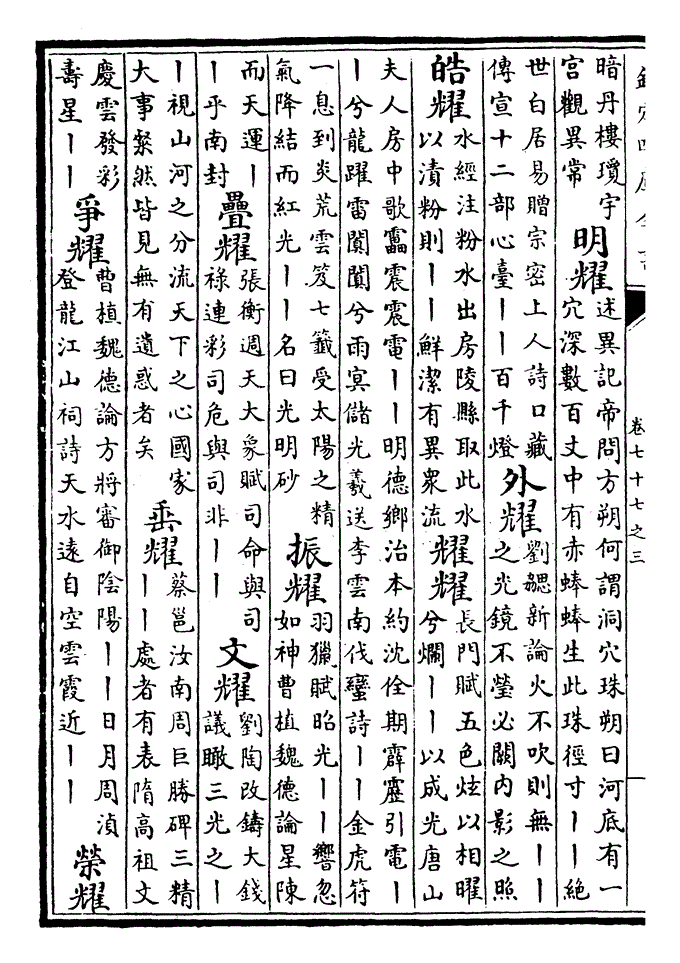 欽定四庫全書
卷七十七之三
暗丹樓瓊宇
宫觀異常
明耀
述異記帝問方朔何謂洞穴珠朔曰河底有一
穴深數百丈中有赤蜯蜯生此珠徑寸丨丨絶
世白居易贈宗密上人詩口藏
傳宣十二部心臺丨丨百千燈
外耀
劉勰新論火不吹則無丨丨
之光鏡不瑩必闕内影之照
皓耀
水經注粉水出房陵縣取此水
以漬粉則丨丨鮮潔有異衆流
耀耀
長門賦五色炫以相曜
兮爛丨丨以成光唐山
夫人房中歌靁震震電丨丨明德鄉治本約沈佺期霹靂引電丨
丨兮龍躍雷闐闐兮雨冥儲光羲送李雲南伐蠻詩丨丨金虎符
一息到炎荒雲笈七籤受太陽之精
氣降結而紅光丨丨名曰光明砂
振耀
羽獵賦昭光丨丨響忽
如神曹植魏德論星陳
而天運丨
丨乎南封
疊耀
張衡週天大象賦司命與司
祿連彩司危與司非丨丨
文耀
劉陶改鑄大錢
議瞰三光之丨
丨視山河之分流天下之心國家
大事粲然皆見無有遺惑者矣
垂耀
蔡邕汝南周巨勝碑三精
丨丨處者有表隋高祖文
慶雲發彩
壽星丨丨
爭耀
曹植魏德論方將審御陰陽丨丨日月周湞
登龍江山祠詩天水遠自空雲霞近丨丨
榮耀